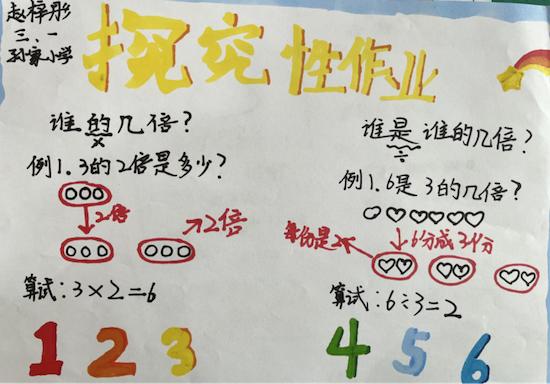 赵梓彤
三、一
孙家小学
探究性作业
谁的几倍?
×
例1.3的2倍是多少?
2倍
2倍
算试:3×2=6
谁是谁的几倍?
÷
例1.6是3的几倍?
每份是2个
6分成3份
算试:6÷3=2
1 2 3 4 5 6